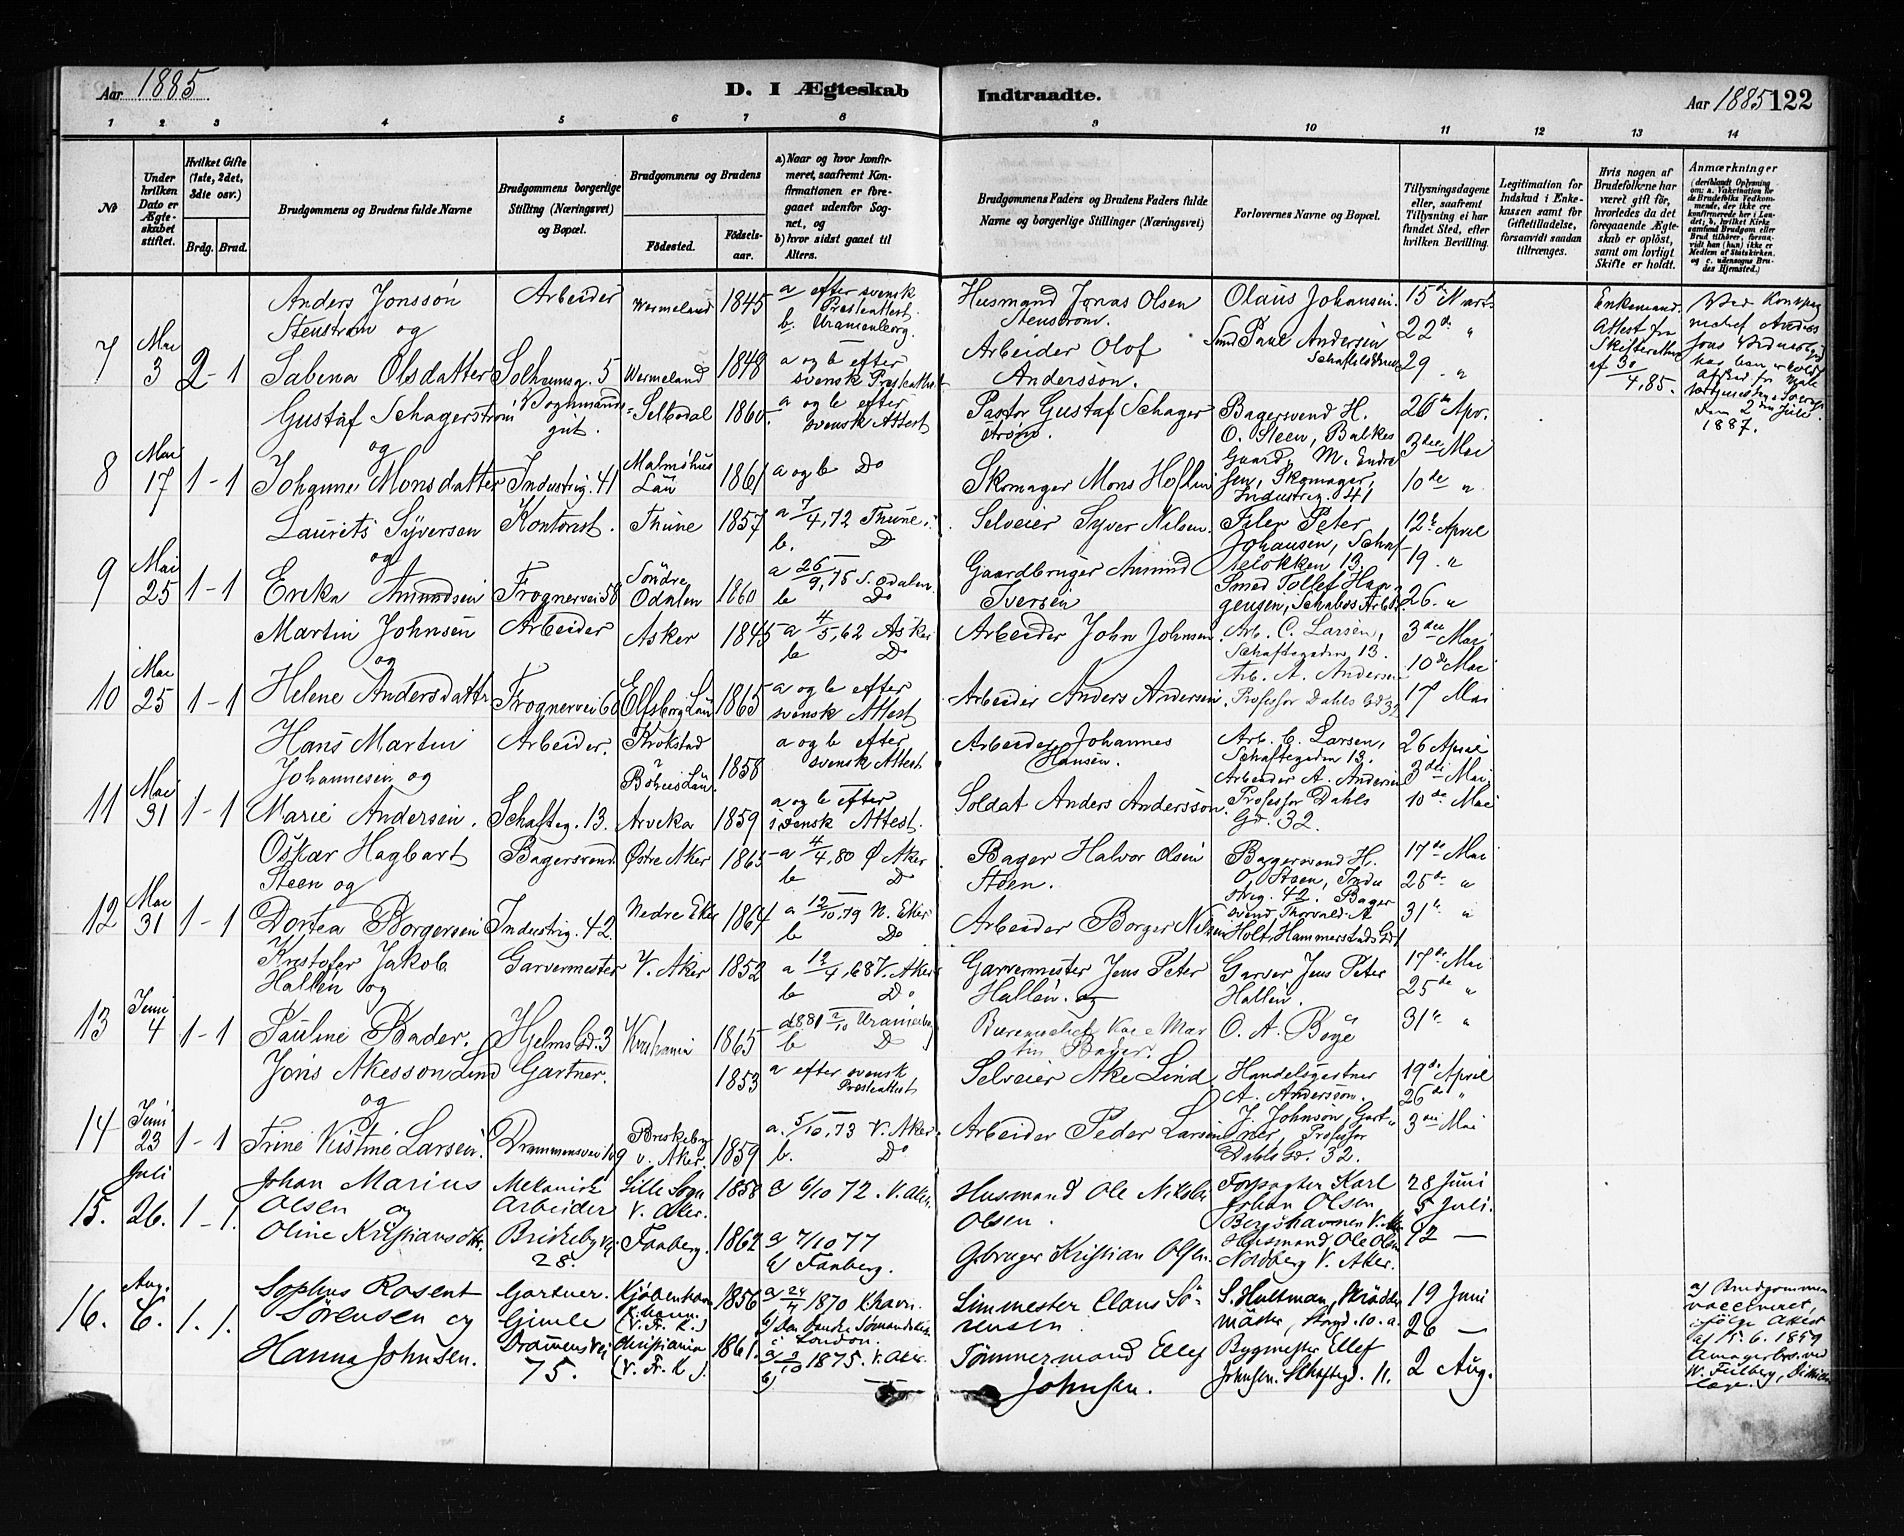 Aar 1885
D. I Ægteskab
Indtraadte.
Aar 1885
122
1 2 3 4 5 6 7 8 9 10 11 12 13 14
No
Under hvilken Dato er Ægteskabet stiftet.
Hvilket Gifte (1ste, 2det, 3die osv.)
Brdg. Brud.
Brudgommens og Brudens fulde Navne
Brudgommens borgerlige Stilling (Næringsvei) og Bopæl.
Brudgommens og Brudens
Fødested.
Fødselsaar.
a) Naar og hvor konfirmeret, saafremt Konfirmationen er foregaaet udenfor Sognet, og
b) hvor sidst gaaet til Alters.
Brudgommens Faders og Brudens Faders fulde Navne og borgerlige Stillinger (Næringsvei)
Forlovernes Navne og Bopæl.
Tillysningsdagene eller, saafremt Tillysning ei har fundet Sted, efter hvilken Bevilling.
Legitimation for Indskud i Enkekassen samt for Giftetilladelse, forsaavidt saadan tiltrænges.
Hvis nogen af Brudefolkene har været gift før, hvorledes da det foregaaende Ægteskab er opløst, samt om lovligt Skifte er holdt.
Anmærkninger
7 Mai 3 2-1
Anders Jonssøn Stenstrøm og
Arbeider Wermeland 1845
a efter svensk Presteattest. b. Uranienborg.
Husmand Jonas Olsen Stenstrøm.
Olaus Johansen.
15de Mart.
22de "
29 "
Enkemand. Attest fra Skifteretten af 30/4, 85.
Sabina Olsdatter
Solheimsg. 5 Wermeland 1848
a og b efter svensk Presteattest
Arbeider Olof Andersson.
Smed Paul Andersen
den 2den Juli 1887.
8 Mai 17 1-1
Gustaf Schagerstrøm og
1860
a og b efter svensk Attest
Pastor Gustaf Schagerstrøm.
Bagersvend H. O. Steen, Balkes Gaard, M. Endresen, Skomager, Industrig. 41
26de Apr.
3die Mai
10de "
Johanne Monsdatter
Industrig. 41 Malmöhus Län 1861
a og b Do
Skomager Mons Hoflin
9 Mai 25 1-1
Laurits Syversen og
Kontorist. Thune 1857
a 7/4, 72 Thune. b. Do
Selveier Syver Nilsen
Filer Peter Johansen, Schafteløkken 13.
12te April
19. "
26. "
Ereka Amundsen
Frognervei 58 Søndre Odalen 1860
a 26/9, 75 S. Odalen b Do
Gaardbruger Amund Iversen
Smed Tollef Hangensen,
10 Mai 25 1-1
Martin Johnsen og
Arbeider Asker 1845
a 4/5, 62 Asker b Do
Arbeider John Johnsen.
Arb. C. Larsen, Schaftegaden 13.
3die Mai
10de Mai
17 Mai
Helene Andersdattr
Frognervei 60 Elfsborg Län 1865
a og b efter svensk Attest
Arbeider Anders Andersen.
Arb. A. Andersen Professor Dahls Gd 32
11 Mai 31 1-1
Hans Martin Johannesen og
Arbeider. Krokstad Böhus Län. 1858
a og b efter svensk Attest
Arbeider Johannes Hansen.
Arb. C. Larsen, Schaftegaden 13.
26 April
3die Mai
10de Mai
Marie Andersen.
Schafteg. 13. Arveka 1859
a og b efter svensk Attest.
Soldat Anders Andersson.
Arbeider A. Andersen Professor Dahls Gd. 32.
12 Mai 31 1-1
Oskar Hagbart Steen og
Bagersvend Østre Aker 1865
a 4/4, 80 Ø Aker b Do
Bager Halvor Olsen Steen.
Bagersvend H. O. Steen, Industrig. 42.
17de Mai
25de "
31te "
Dortea Borgersen
Industrig. 42. Nedre Eker 1864
a 12/10, 79 N. Eker b Do
Arbeider Borger Nilsen
Bagersvend Thorvald A Holt, Hammerstads Gd 1
13 Juni 4 1-1
Kristofer Jakob Hallén og
Garvermester V. Aker 1852
a 12/4, 68 V. Aker b Do
Garvermester Jens Peter Hallén. og
Garver Jens Peter Hallén.
17de Mai
25de "
31te "
Pauline Bader.
Hjelms Gd. 3 Kristiania 1865
b Do
Martin Bader.
O. A. Bøye
14 Juni 23 1-1
Jöns Akesson Lind og
Gartner. 1853
a efter svensk Presteattest
Selveier Ake Lind
Handelsgartner A. Andersson.
19de April
26de "
3die Mai
Trine Kistine Larsen.
Drammensvei 109 Briskeby v. Aker. 1859
a. 5/10, 73 V. Aker b. Do
Arbeider Peder Larsen
J. Johnson, Gartner, Professor Dahls Gd. 32.
15. Juli 26. 1-1.
Johan Marius Olsen og
Mekanisk Arbeider Lille Sogn V. Aker. 1858
a 6/10 72. V. Aker.
Husmand Ole Nikolai Olsen.
Forpagter Karl Johan Olsen Bergshavnen V. Aker
28 Juni
5 Juli.
12 —
Oline Kristiansdtr.
Briskebyvei 28. Faaberg. 1862
a 7/10 77 b) Faaberg.
Gbruger Kristian Olsen.
Husmand Ole Olsen Nordberg V. Aker.
16. Aug. 6. 1. 1.
Sophus Rosent Sørensen og
Gartner. Gimle Kjøbenhavn (V. Fr. K.) 1856
a 24/4 1870 Khavn. b) Den danske Sømandskirke i London.
Limmester Claus Sørensen
S. Hultman, Skräddermäster, Storgd. 10. a.
19 Juni
26 —
2 Aug.
a) Brudgommen vaccineret, ifølge Attest af 15. 6. 1859 Amagerbro ved W. Filberg, Districtslæge.
Hanna Johnsen.
Drammensvei 75. Christiania (V. Fr. K.). 1861.
a) 2/10 1875. V. Aker. b) —
Tømmermand Ellef Johnsen.
Bygmester Ellef Johnsen. Schaftegd. 11.